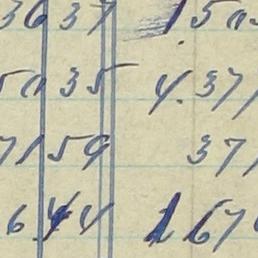 36 37 150
50 35 4.37
71 59 37
6.44 167